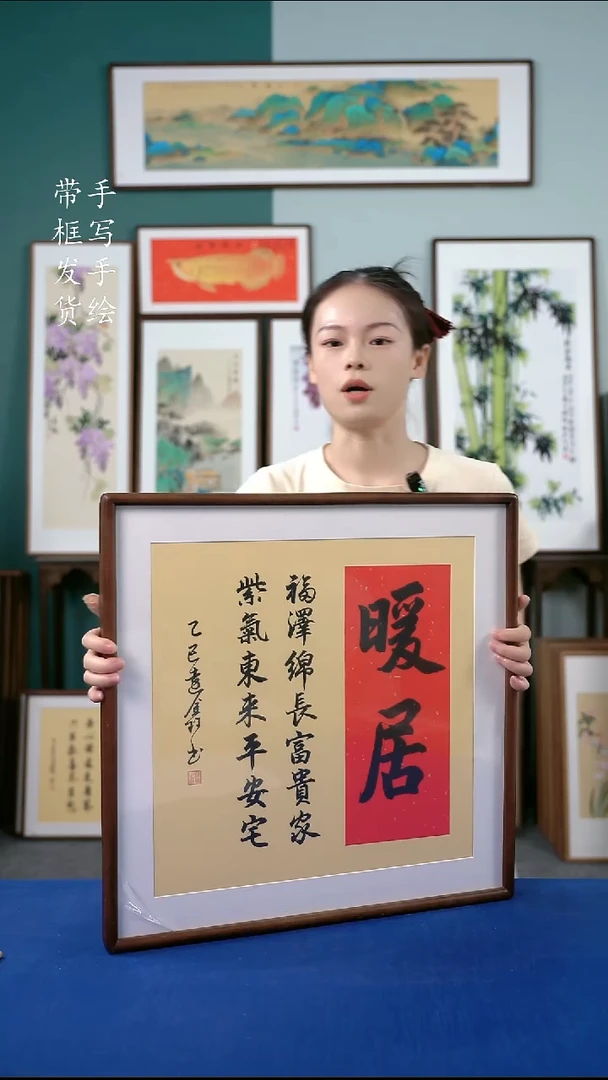 手写手绘
带框发货
暖居
福澤綿長富貴家
紫氣東来平安宅